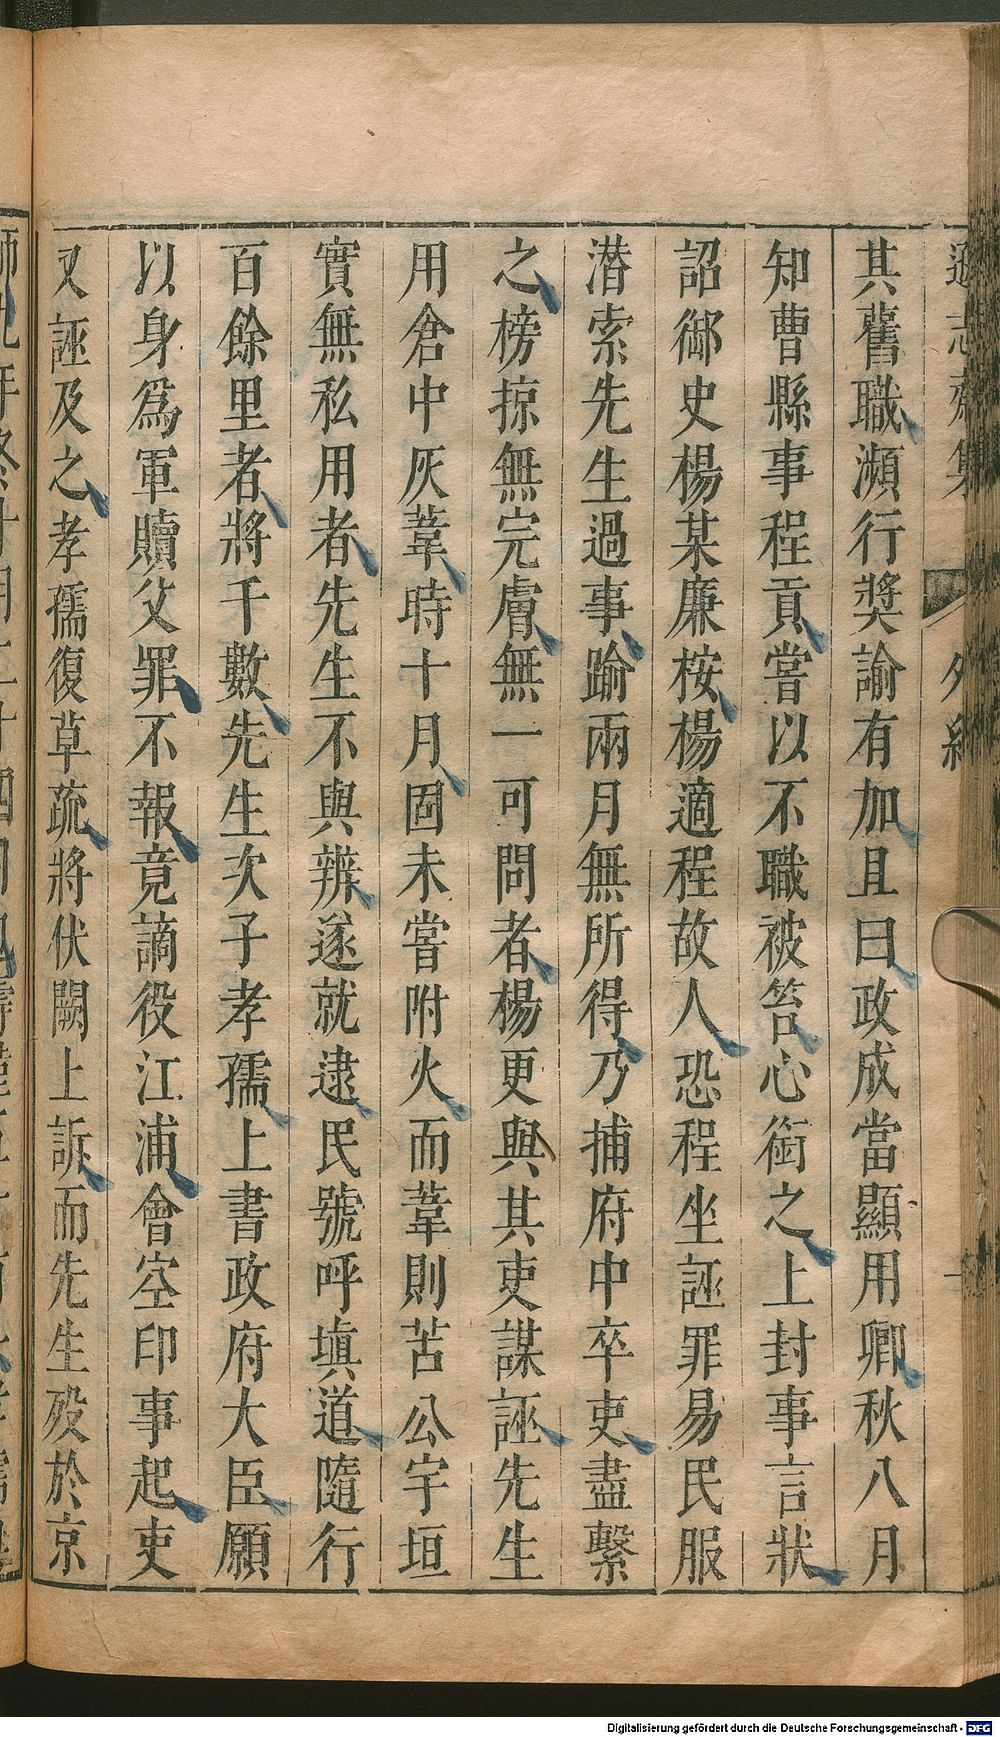 遜志齋集
外紀
其舊職瀕行奬諭有加且曰政成當顯用卿秋八月
知曹縣事程貢嘗以不職被笞心銜之上封事言狀
詔御史楊某廉桉楊適程故人恐程坐誣罪易民服
潜索先生過事踰兩月無所得乃捕府中卒吏盡繫
之榜掠無完膚無一可問者楊更與其吏謀誣先生
用倉中灰葦時十月固未嘗附火而葦則苫公宇垣
實無私用者先生不與辨遂就逮民號呼塡道隨行
百餘里者將千數先生次子孝孺上書政府大臣願
以身爲軍贖父罪不報竟謫役江浦會空印事起吏
又誣及之孝孺復草疏將伏闕上訴而先生殁於京
Digitalisierung gefördert durch die Deutsche Forschungsgemeinschaft - DFG